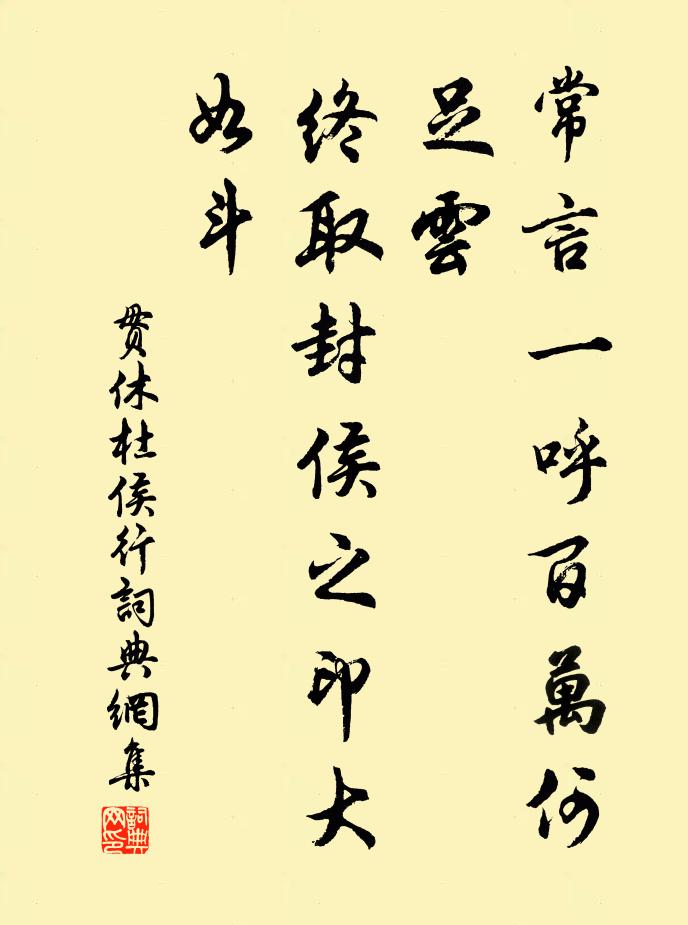 常言一呼百萬何
足雲
終取封侯之印大
如斗
貫休杜侯行詞典網集
詞典
网印